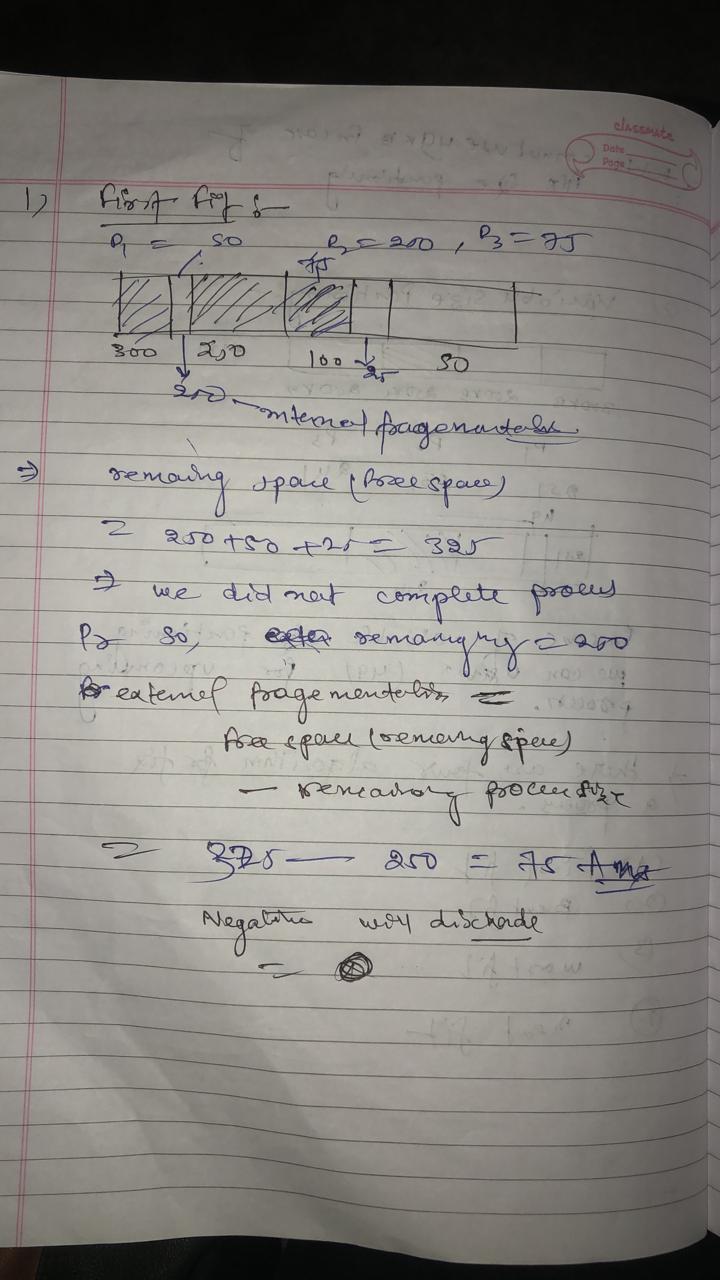 classmate
Date
Page
1) First Fit :-
P1 = 50 P2 = 200, P3 = 75
75
300 200 100 25 50
250 internal fragementation
⇒ remaing space (free space)
= 250 + 50 + 25 = 325
⇒ we did not complete process
remaing = 200
external fragementation =
free space (remaing space)
- remaining process size
= 325 - 250 = 75 Ans
Negative will discharde
=